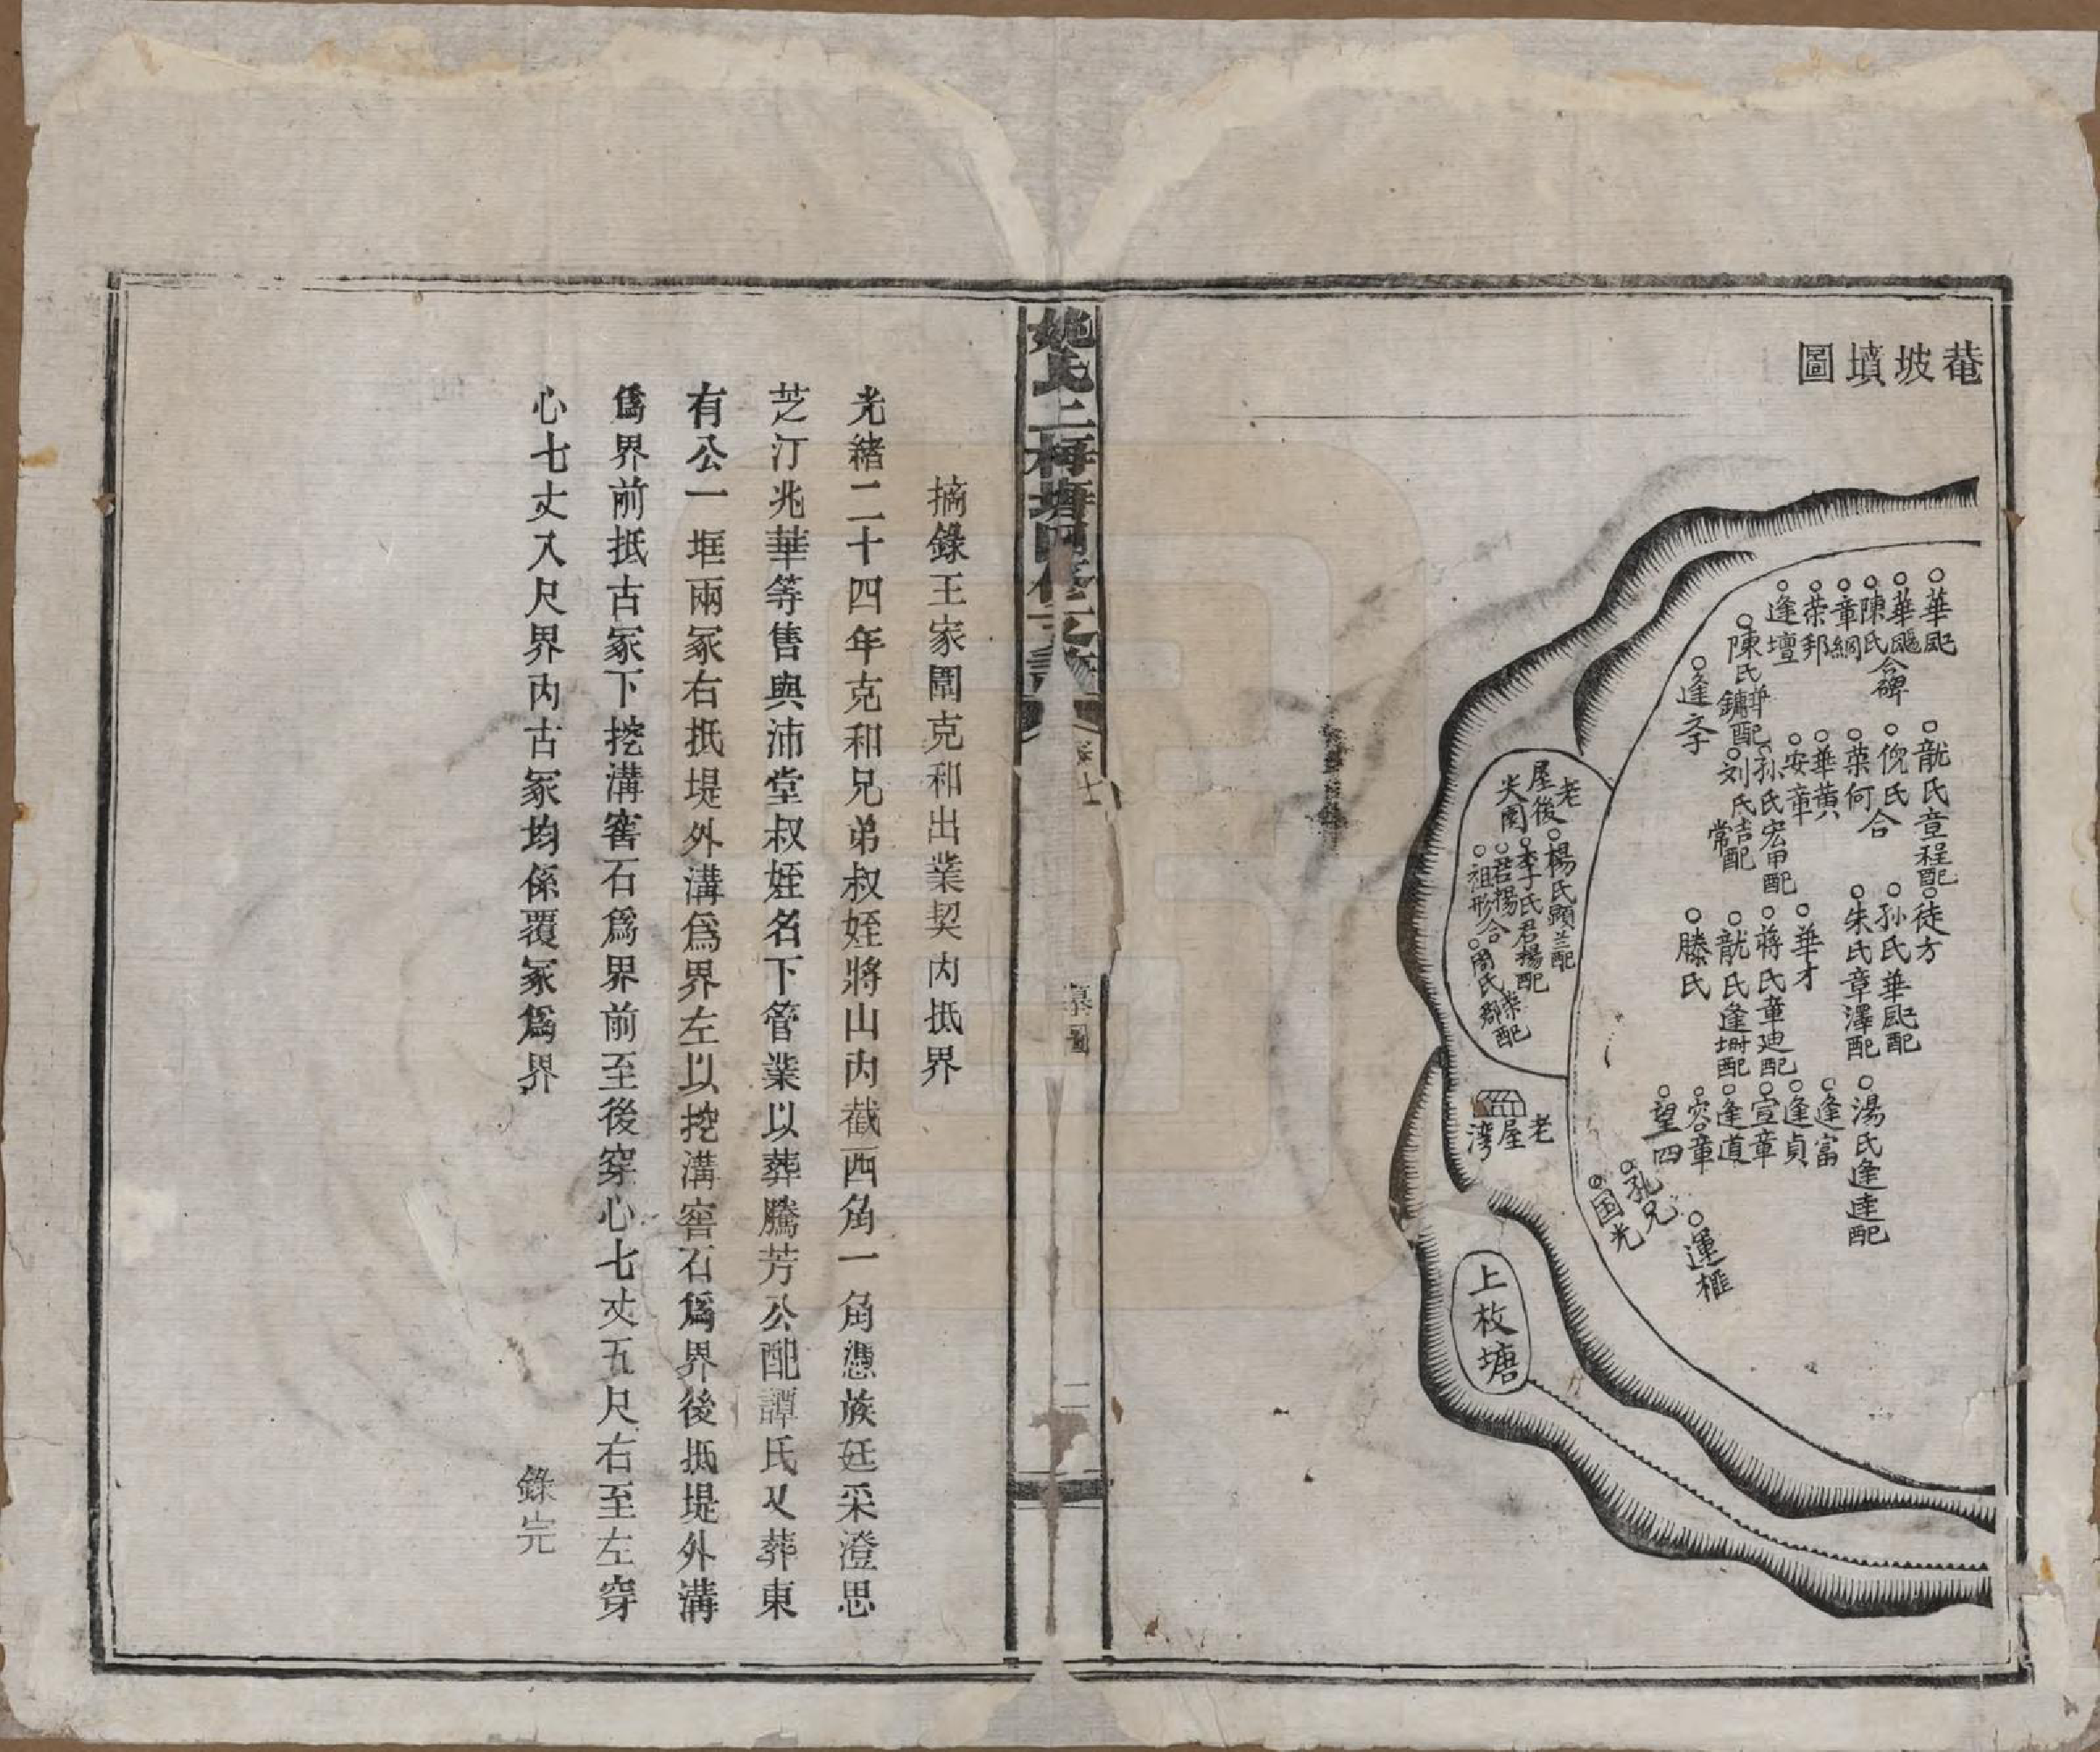 菴坡墳圖
華颫
華颺
陳氏合碑
章綱
荣邦
逢壇
陳氏華鏞配
逢孝
龍氏章程配
倪氏合
荣何
華黄
安章
孙氏宏甲配
刘氏吉常配
徒方
孙氏華颫配
朱氏章澤配
華才
蔣氏章迪配
龍氏逢坿配
滕氏
湯氏逢逵配
逢富
逢貞
宣章
逢道
容章
望四
孔兄
国光
運樞
老屋後尖園
楊氏顯兰配
李氏君楊配
君楊合
祖形
周氏鄰榮配
老屋湾
上枚塘
姚氏上梅塘四修支譜
卷十
墓圖
二
摘錄王家園克和出業契内抵界
光緒二十四年克和兄弟叔姪將山内截西角一角憑族廷采澄思
芝汀兆華等售與沛堂叔姪名下管業以葬騰芳公配譚氏又葬東
有公一塚兩冢右抵堤外溝爲界左以挖溝窖石爲界後抵堤外溝
爲界前抵古冢下挖溝窖石爲界前至後穿心七丈五尺右至左穿
心七丈入尺界内古冢均係覆冢爲界
錄完